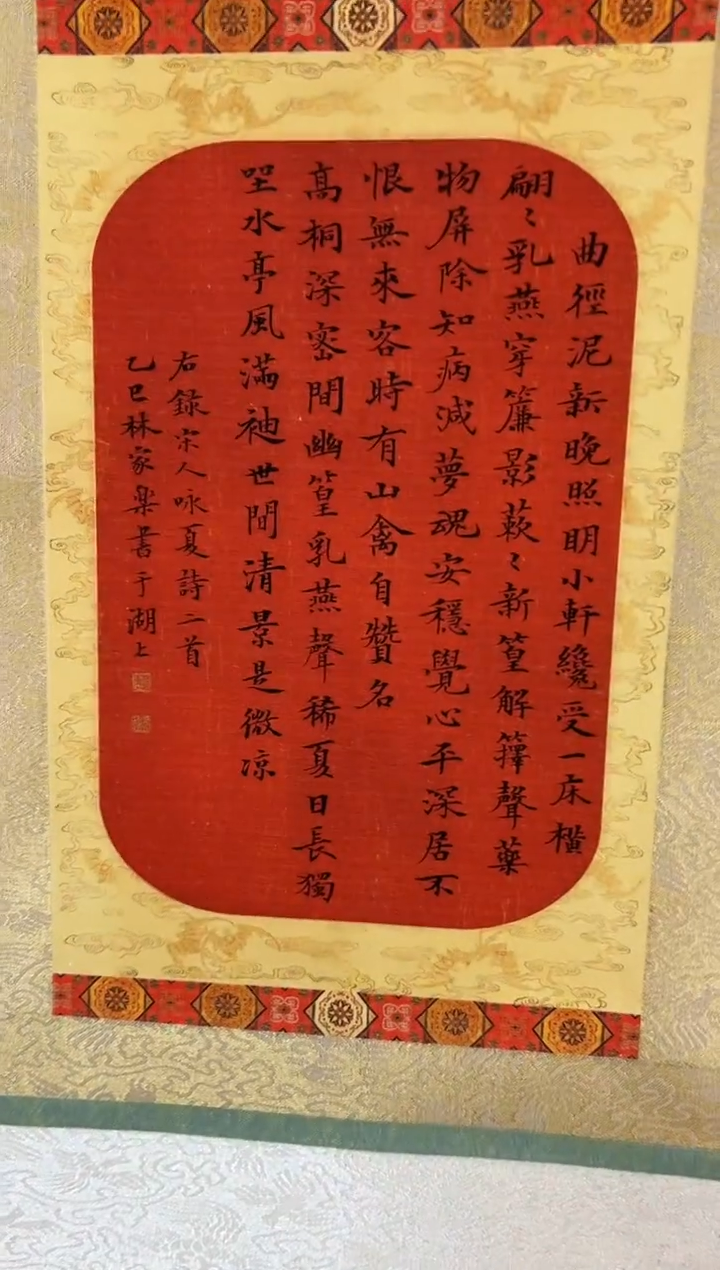 曲徑泥新晚照明小軒纔受一床橫
翩〻乳燕穿簾影蔌〻新篁解籜聲藥
物屏除知病減夢魂安穩覺心平深居不
恨無來客時有山禽自贊名
高桐深密間幽篁乳燕聲稀夏日長獨
坐水亭風滿袖世間清景是微凉
右錄宋人咏夏詩二首
乙巳林家樂書于湖上